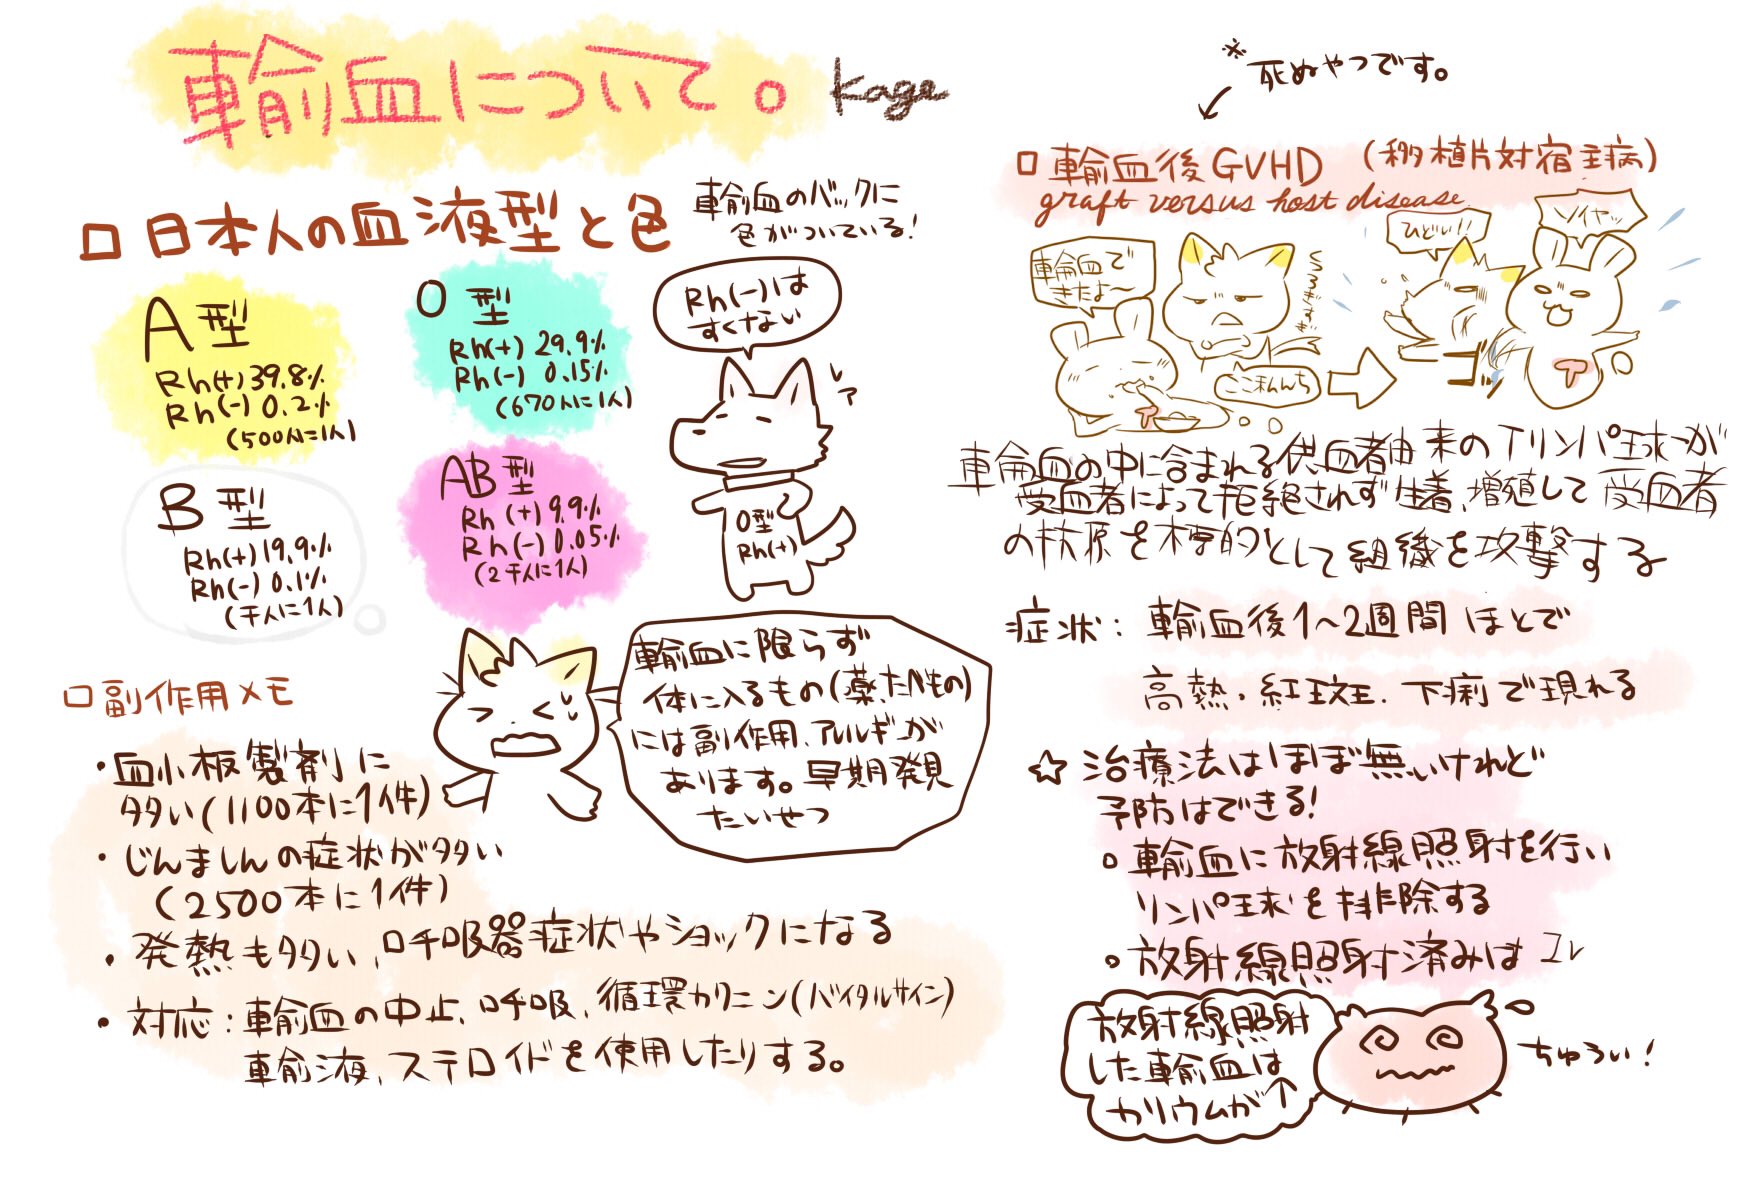 輸血について。
kage
□日本人の血液型と色
輸血のバックに
色がついている!
A型
Rh(+) 39.8%
Rh(-) 0.2%
(500人に1人)
O型
Rh(+) 29.9%
Rh(-) 0.15%
(670人に1人)
B型
Rh(+) 19.9%
Rh(-) 0.1%
(千人に1人)
AB型
Rh(+) 9.9%
Rh(-) 0.05%
(2千人に1人)
Rh(-)は
すくない
O型
Rh(+)
輸血に限らず
体に入るもの(薬、たべもの)
には副作用、アレルギーが
あります。早期発見
たいせつ
□副作用メモ
・血小板製剤に
多い(1100本に1件)
・じんましんの症状が多い
(2500本に1件)
・発熱も多い、呼吸器症状やショックになる
・対応:輸血の中止、呼吸、循環カリニン(バイタルサイン)
輸液、ステロイドを使用したりする。
※死ぬやつです。
□輸血後GVHD (移植片対宿主病)
graft versus host disease
輸血で
きたよ〜
くつろぎすぎ
ここ私んち
ひどい!!
ソイヤッ
ゴッ
輸血の中に含まれる供血者由来のTリンパ球が
受血者によって拒絶されず生着、増殖して受血者
の抗原を標的として組織を攻撃する
症状:輸血後1〜2週間ほどで
高熱・紅斑、下痢で現れる
☆治療法はほぼ無いけれど
予防はできる!
○輸血に放射線照射を行い
リンパ球を排除する
○放射線照射済みは コレ
放射線照射
した輸血は
カリウムが↑
ちゅうい!